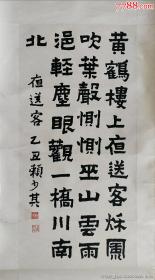 7788.com
黄鶴樓上夜送客秌風
吹葉聲惻惻巫山雲雨
浥輕塵眼觀一橋川南
北
夜送客乙丑賴少其